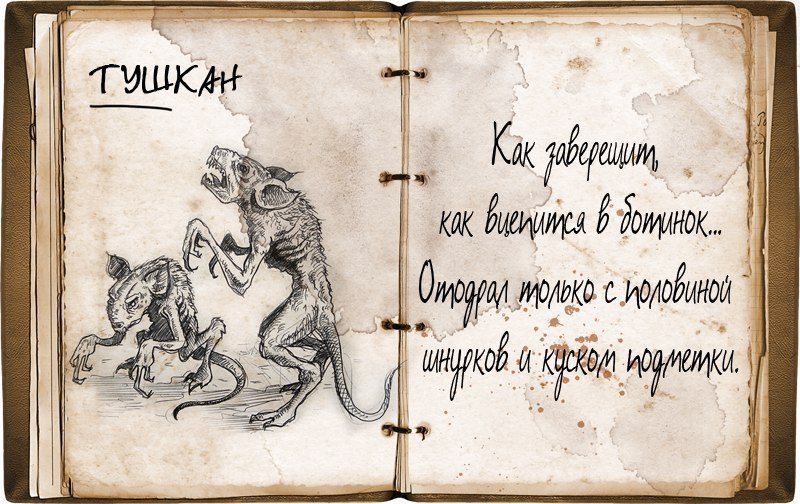 ТУШКАН
Как заверещит,
как вцепится в ботинок...
Отодрал только с половиной
шнурков и куском подметки.